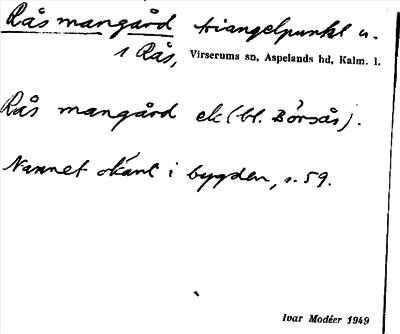 Rås mangård triangelpunkt u.
1 Rås, Virserums sn, Aspelands hd, Kalm. l.
Rås mangård ek (bl. Börsås).
Namnet okänt i bygden, s. 59.
Ivar Modéer 1949